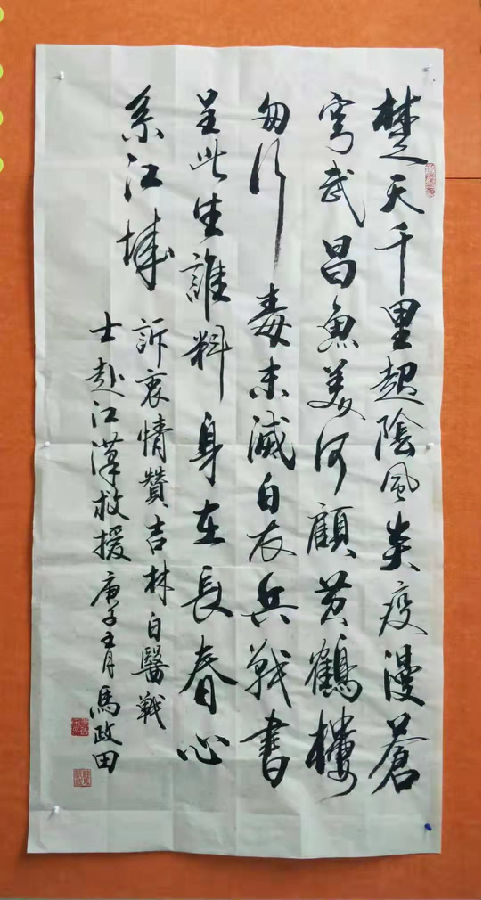 楚天千里起陰風炎疫漫蒼
穹武昌魚美何顧黄鶴樓
匆行毒未滅白衣兵戰書
呈此生誰料身在長春心
系江城
訴衷情贊吉林白醫戰
士赴江漢救援庚子五月馬政田